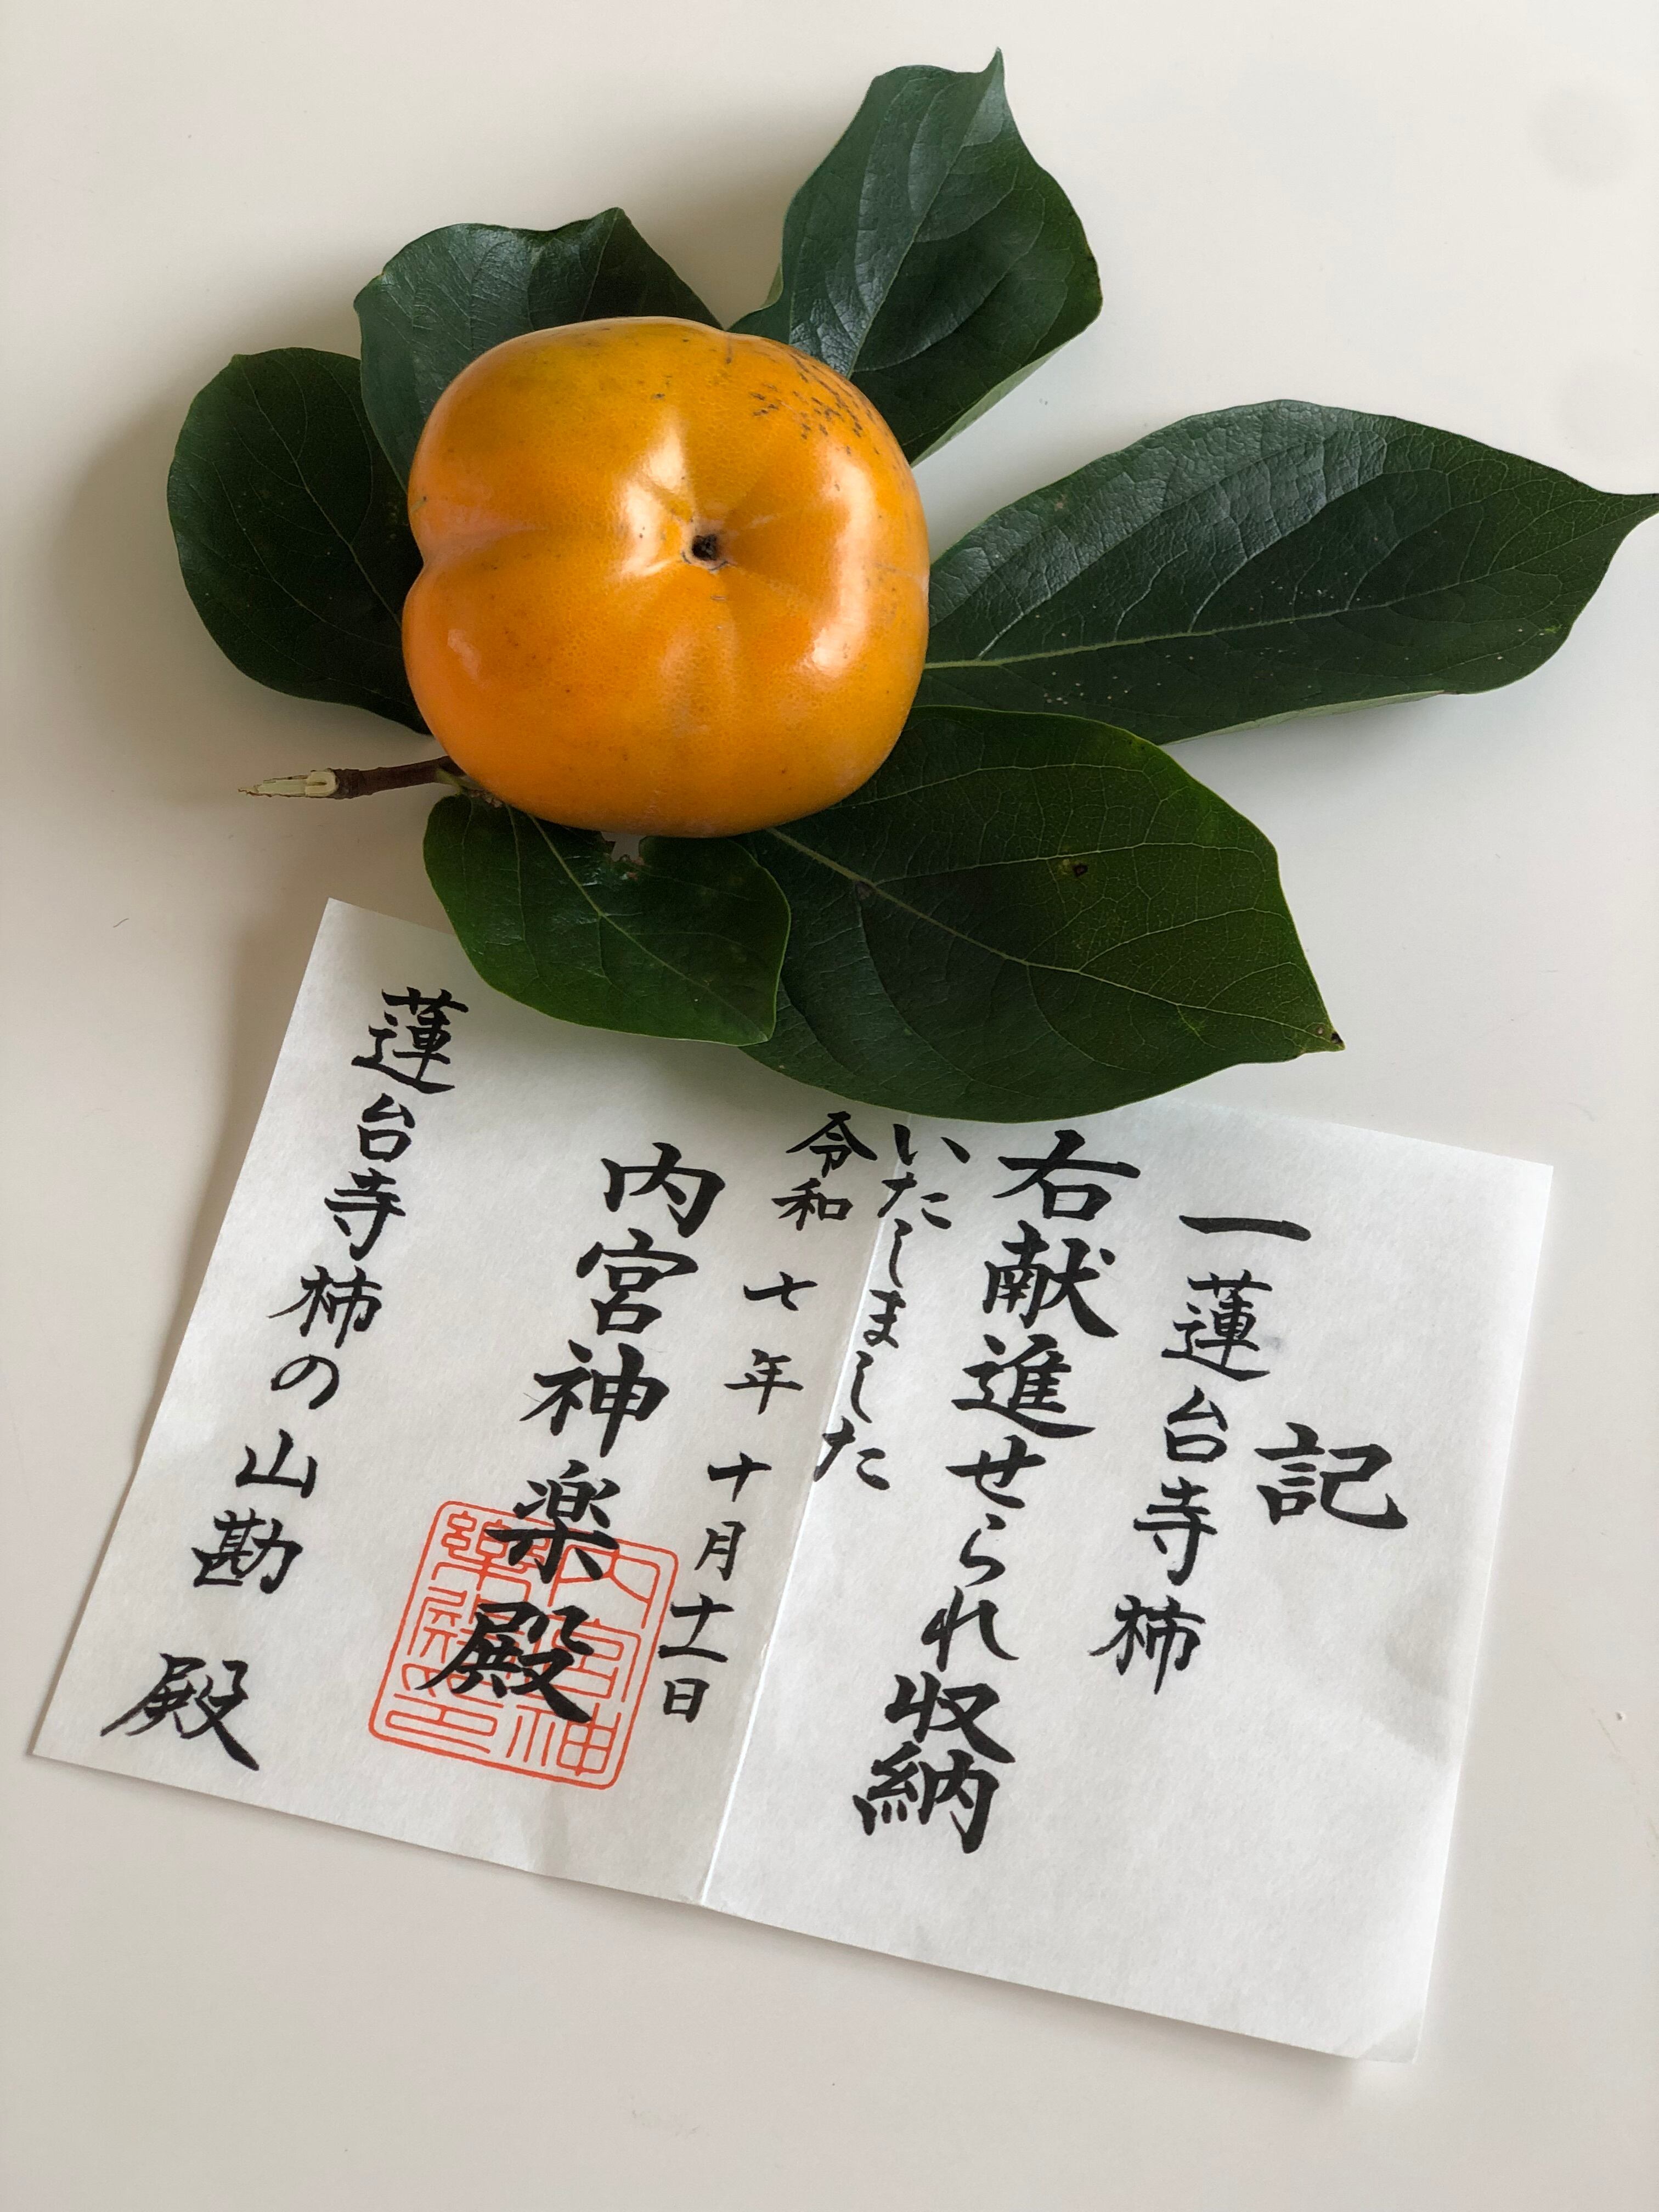 記
一 蓮台寺柿
右献進せられ収納
いたしました
令和 七 年 十 月 十一 日
内宮神楽殿
内宮神
楽殿印
蓮台寺柿の山勘 殿